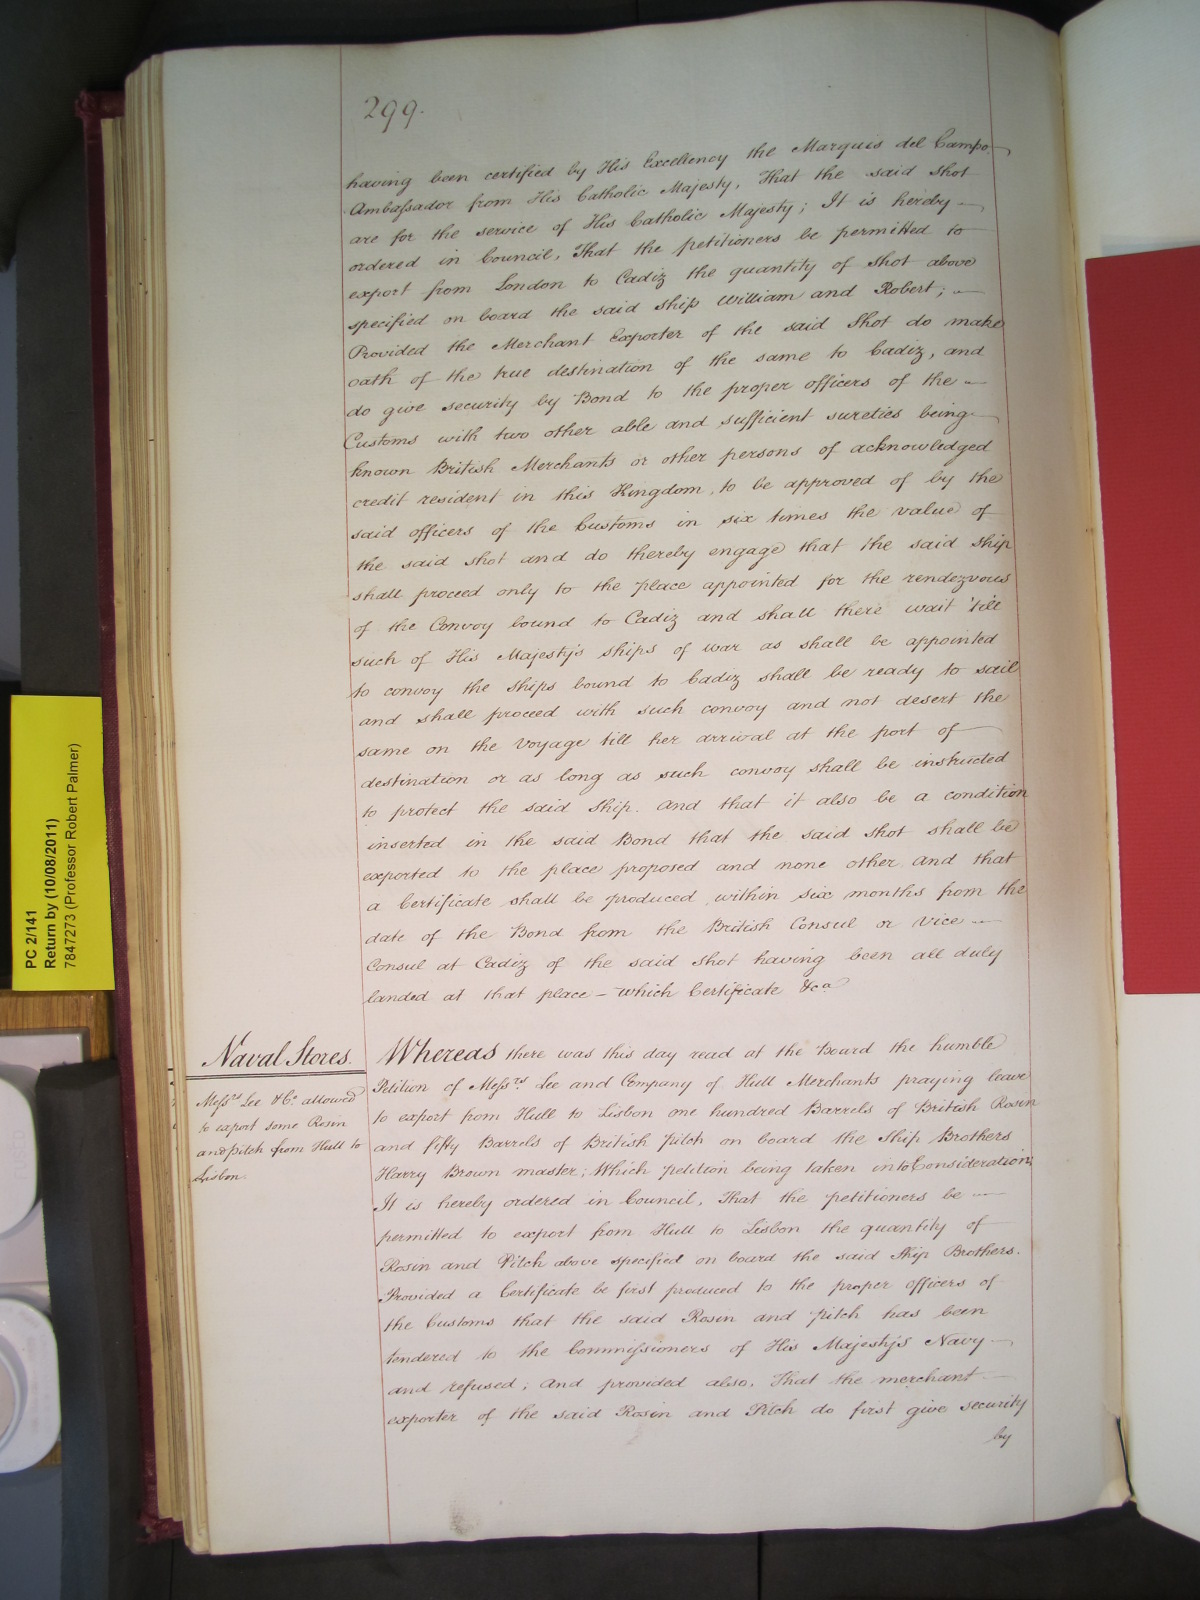 299.
having been certified by His Excellency the Marquis del Campo
Ambassador from His Catholic Majesty, That the said shot
are for the service of His Catholic Majesty; It is hereby
ordered in Council, That the petitioners be permitted to
export from London to Cadiz the quantity of shot above
specified on board the said ship William and Robert;
Provided the Merchant Exporter of the said Shot do make
oath of the true destination of the same to Cadiz, and
do give security by Bond to the proper officers of the
Customs with two other able and sufficient sureties being
known British Merchants or other persons of acknowledged
credit resident in this Kingdom, to be approved of by the
said officers of the Customs in six times the value of
the said shot and do thereby engage that the said ship
shall proceed only to the place appointed for the rendezvous
of the Convoy bound to Cadiz and shall there wait 'till
such of His Majesty's ships of war as shall be appointed
to convoy the ships bound to Cadiz shall be ready to sail
and shall proceed with such convoy and not desert the
same on the voyage till her arrival at the port of
destination or as long as such convoy shall be instructed
to protect the said ship. And that it also be a condition
inserted in the said Bond that the said shot shall be
exported to the place proposed and none other and that
a Certificate shall be produced within six months from the
date of the Bond from the British Consul or Vice
Consul at Cadiz of the said shot having been all duly
landed at that place – which Certificate &ca
Naval Stores.
Messrs Lee & Co. allowed
to export some Rosin
and pitch from Hull to
Lisbon.
Whereas there was this day read at the Board the humble
Petition of Messrs. Lee and Company of Hull Merchants praying leave
to export from Hull to Lisbon one hundred Barrels of British Rosin
and fifty Barrels of British pitch on board the Ship Brothers
Harry Brown master; Which petition being taken into Consideration,
It is hereby ordered in Council, That the petitioners be
permitted to export from Hull to Lisbon the quantity of
Rosin and Pitch above specified on board the said Ship Brothers.
Provided a Certificate be first produced to the proper officers of
the Customs that the said Rosin and pitch has been
tendered to the Commissioners of His Majesty's Navy
and refused; And provided also, That the merchant
exporter of the said Rosin and Pitch do first give security
by
PC 2/141
Return by (10/08/2011)
7847273 (Professor Robert Palmer)